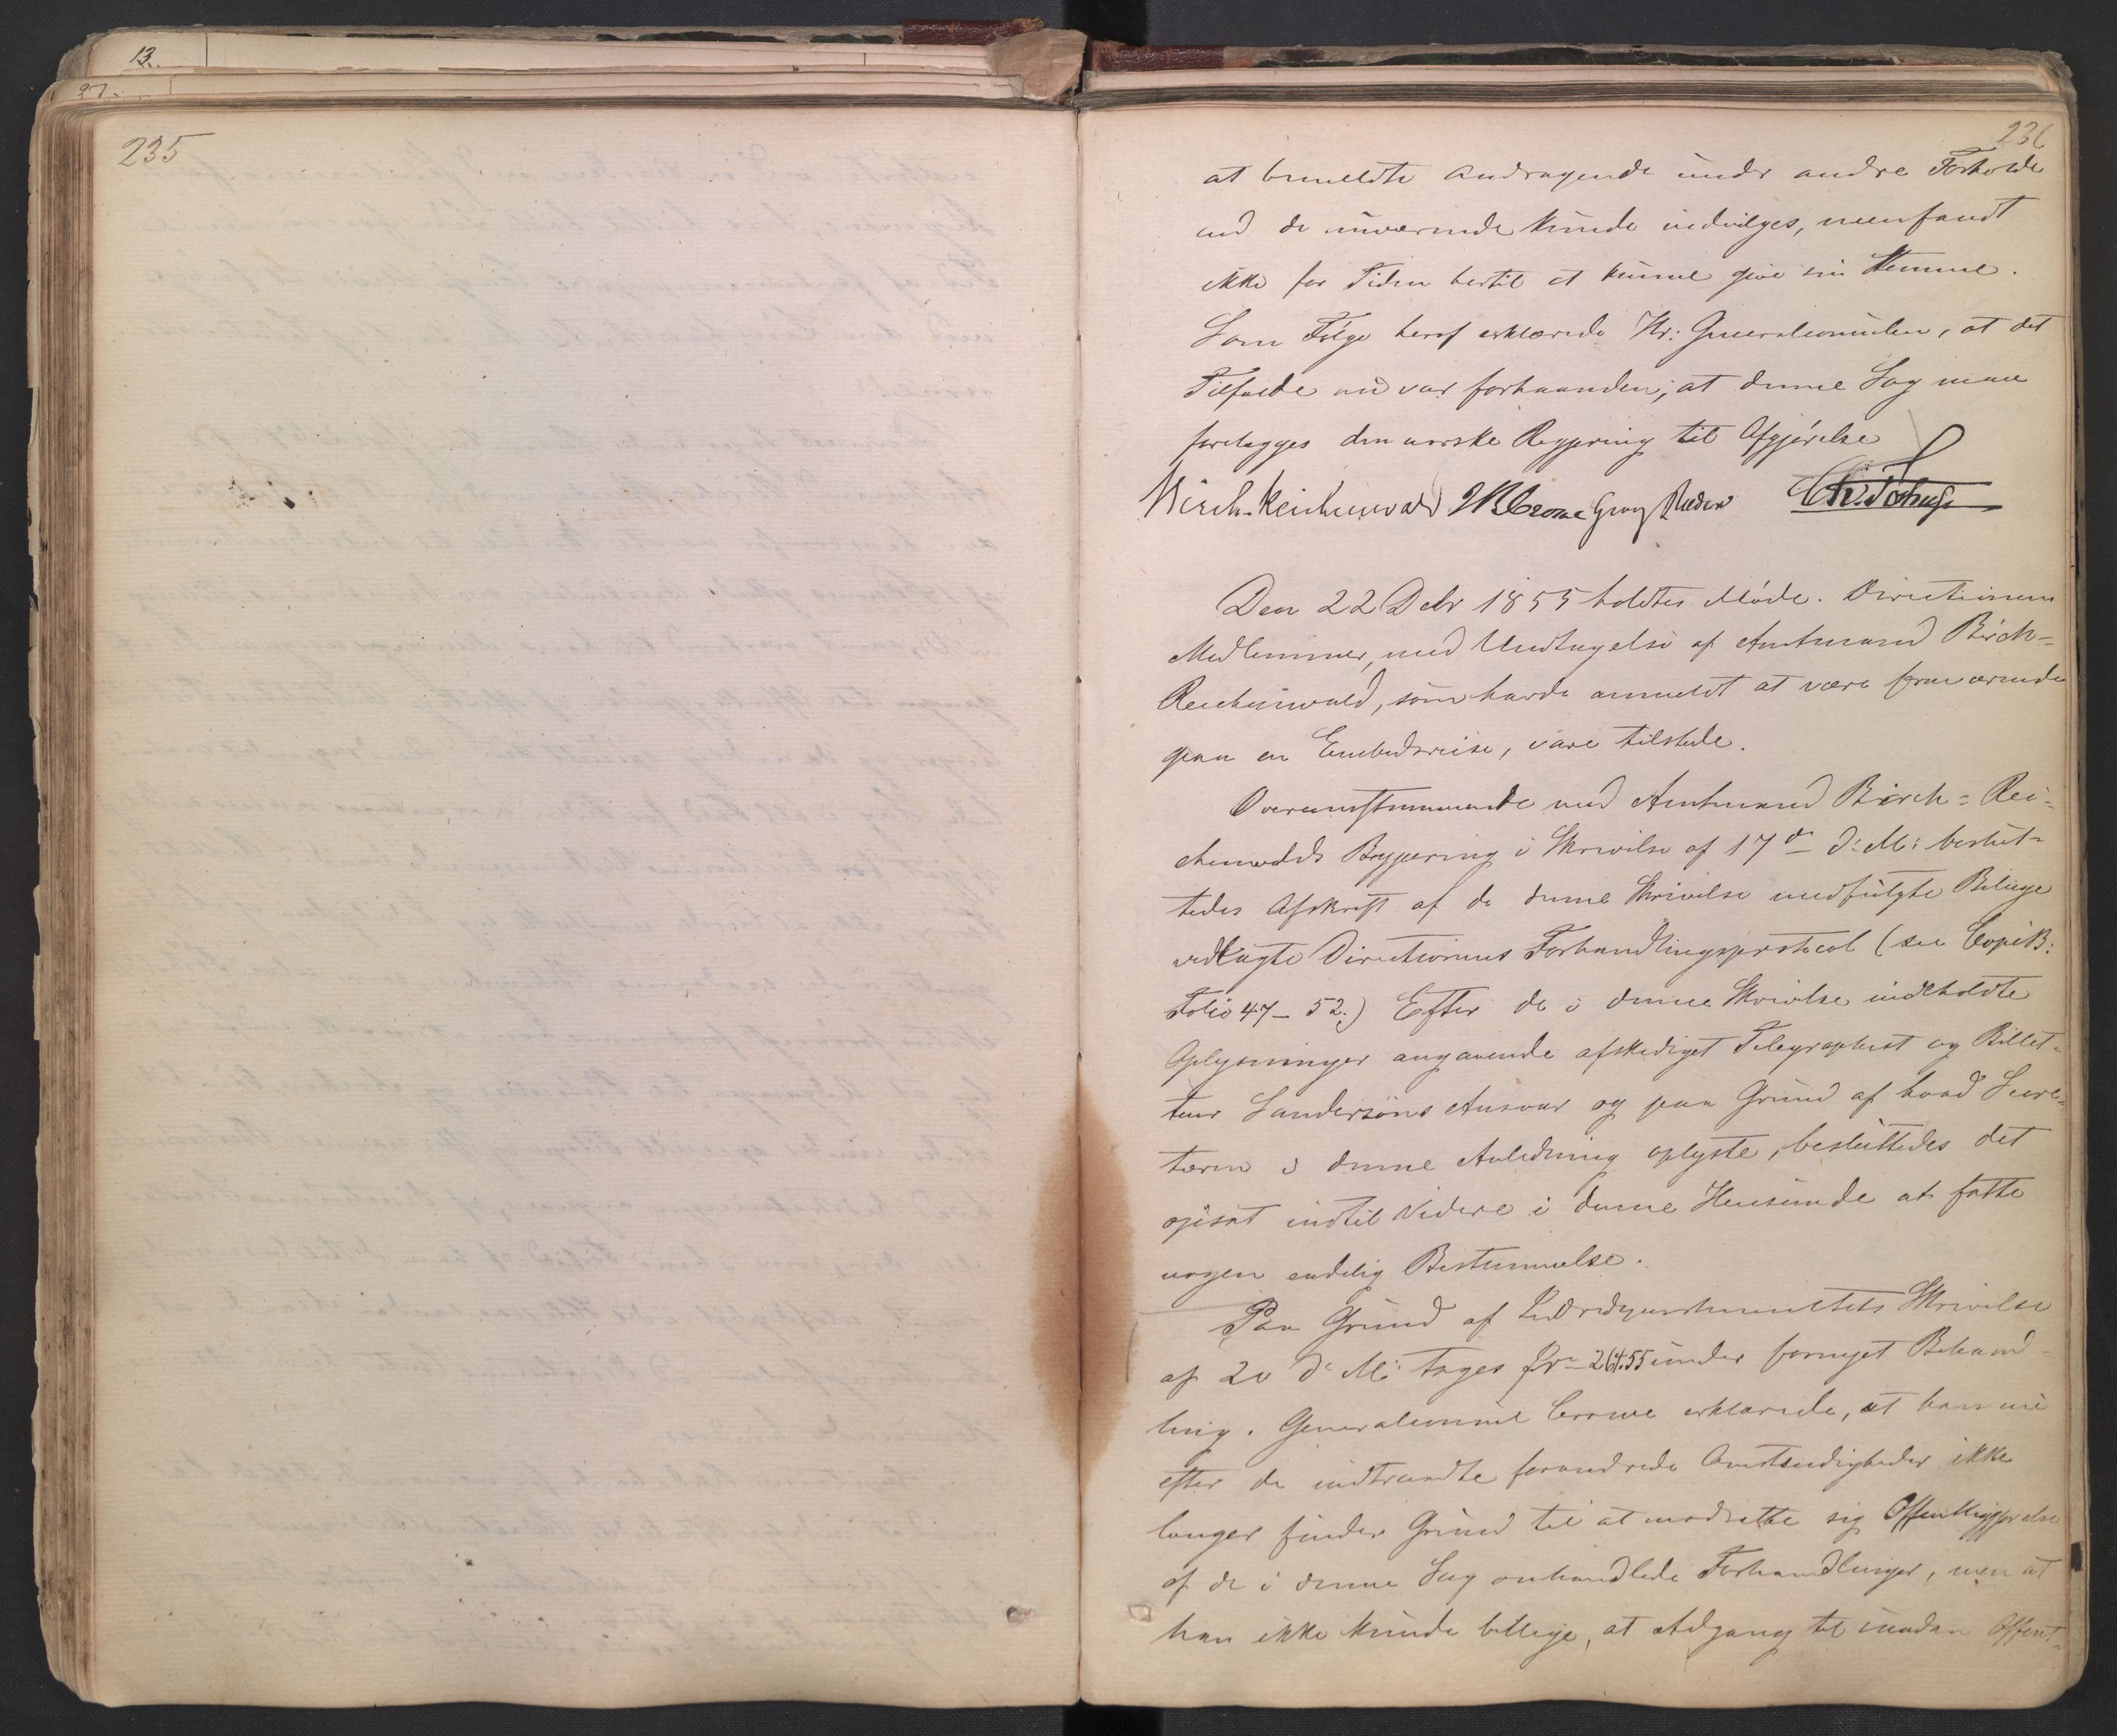 13.
27.
235
236
at bemeldte Andragende under andre Forholde
end de nuværende kunde indvilges, men fandt
ikke for Tiden hertil at kunne give sin Stemme.
Som Følge heraf erklærede Hr: Generalconsulen, at det
Tilfælde nu var forhaanden, at denne Sag maae
forelægges den norske Regjering til Afgjørelse
Birch-Reichenwald JRCrowe
Den 22 Debr 1855 holdtes Møde. Directionens
Medlemmer, med Undtagelse af Amtmand Birch-
Reichenwald, som havde anmeldt at være fraværende
paa en Embedsreise, vare tilstede.
Overeensstemmende med Amtmand Birch-Rei-
chenwalds Begjæring i Skrivelse af 17de d: M: beslut-
tedes Afskrift af de denne Skrivelse medfulgte Bilage
vedlagte Directionens Forhandlingsprotocol (see CopiB:
Folio 47-52.) Efter de i denne Skrivelse indeholdte
Oplysninger angaaende afskediget Telegraphist og Billet-
teur Sandersøns Ansvar og paa Grund af hvad Secre-
tæren i denne Anledning oplyste, besluttedes det
opsat indtil Videre i denne Henseende at fatte
nogen endelig Bestemmelse.
Paa Grund af Indredepartementets Skrivelse
af 20 d: M: toges Nr 264.55 under fornyet Behand-
ling. Generalconsul Crowe erklærede, at han nu
efter de indtraadte forandrede Omstændigheder ikke
længer finder Grund til at modsætte sig Offentliggjørelse
af de i denne Sag omhandlede Forhandlinger, men at
han ikke kunde billige, at Adgang til saadan Offent-